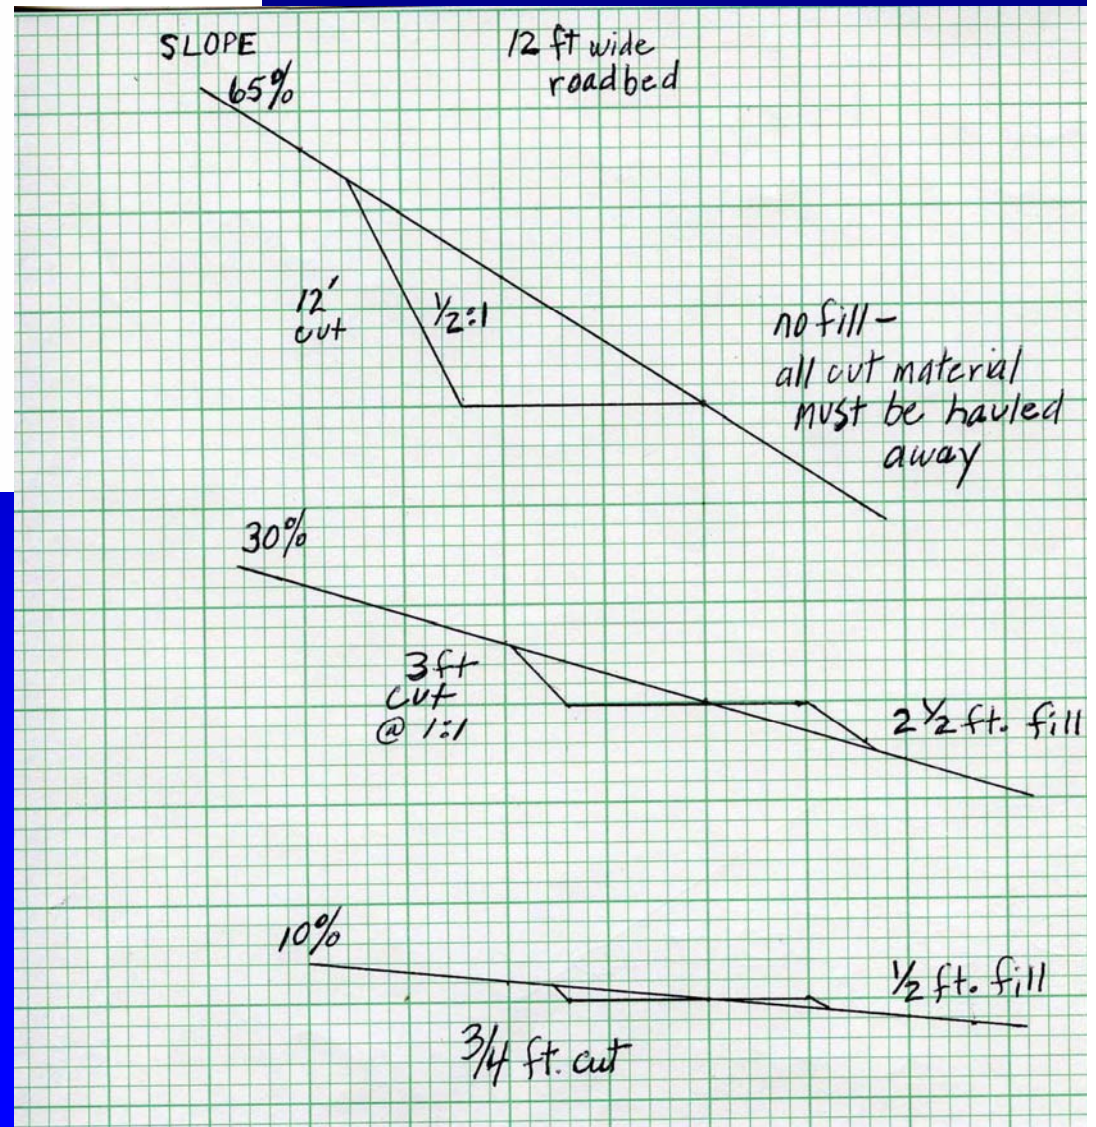 SLOPE
12 ft wide
roadbed
65%
12'
cut
½:1
no fill -
all cut material
must be hauled
away
30%
3 ft
cut
@ 1:1
2 ½ ft. fill
10%
½ ft. fill
3/4 ft. cut